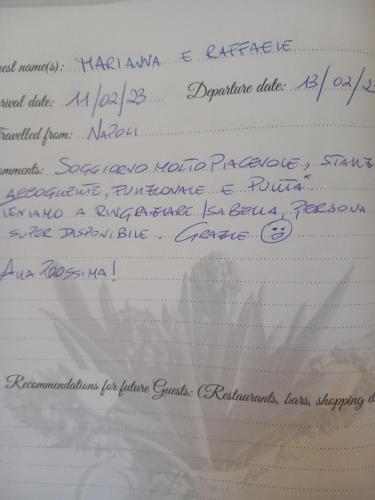 uest name(s): MARIANNA E RAFFAELE
rrival date: 11/02/23 Departure date: 13/02/23
Travelled from: NAPOLI
omments: SOGGIORNO MOLTO PIACEVOLE, STANZ
ACCOGLIENTE, FUNZIONALE E PULITA.
TENIAMO A RINGRAZIARE ISABELLA, PERSONA
SUPER DISPONIBILE. GRAZIE
ALLA PROSSIMA!
Recommendations for future Guests: (Restaurants, bars, shopping